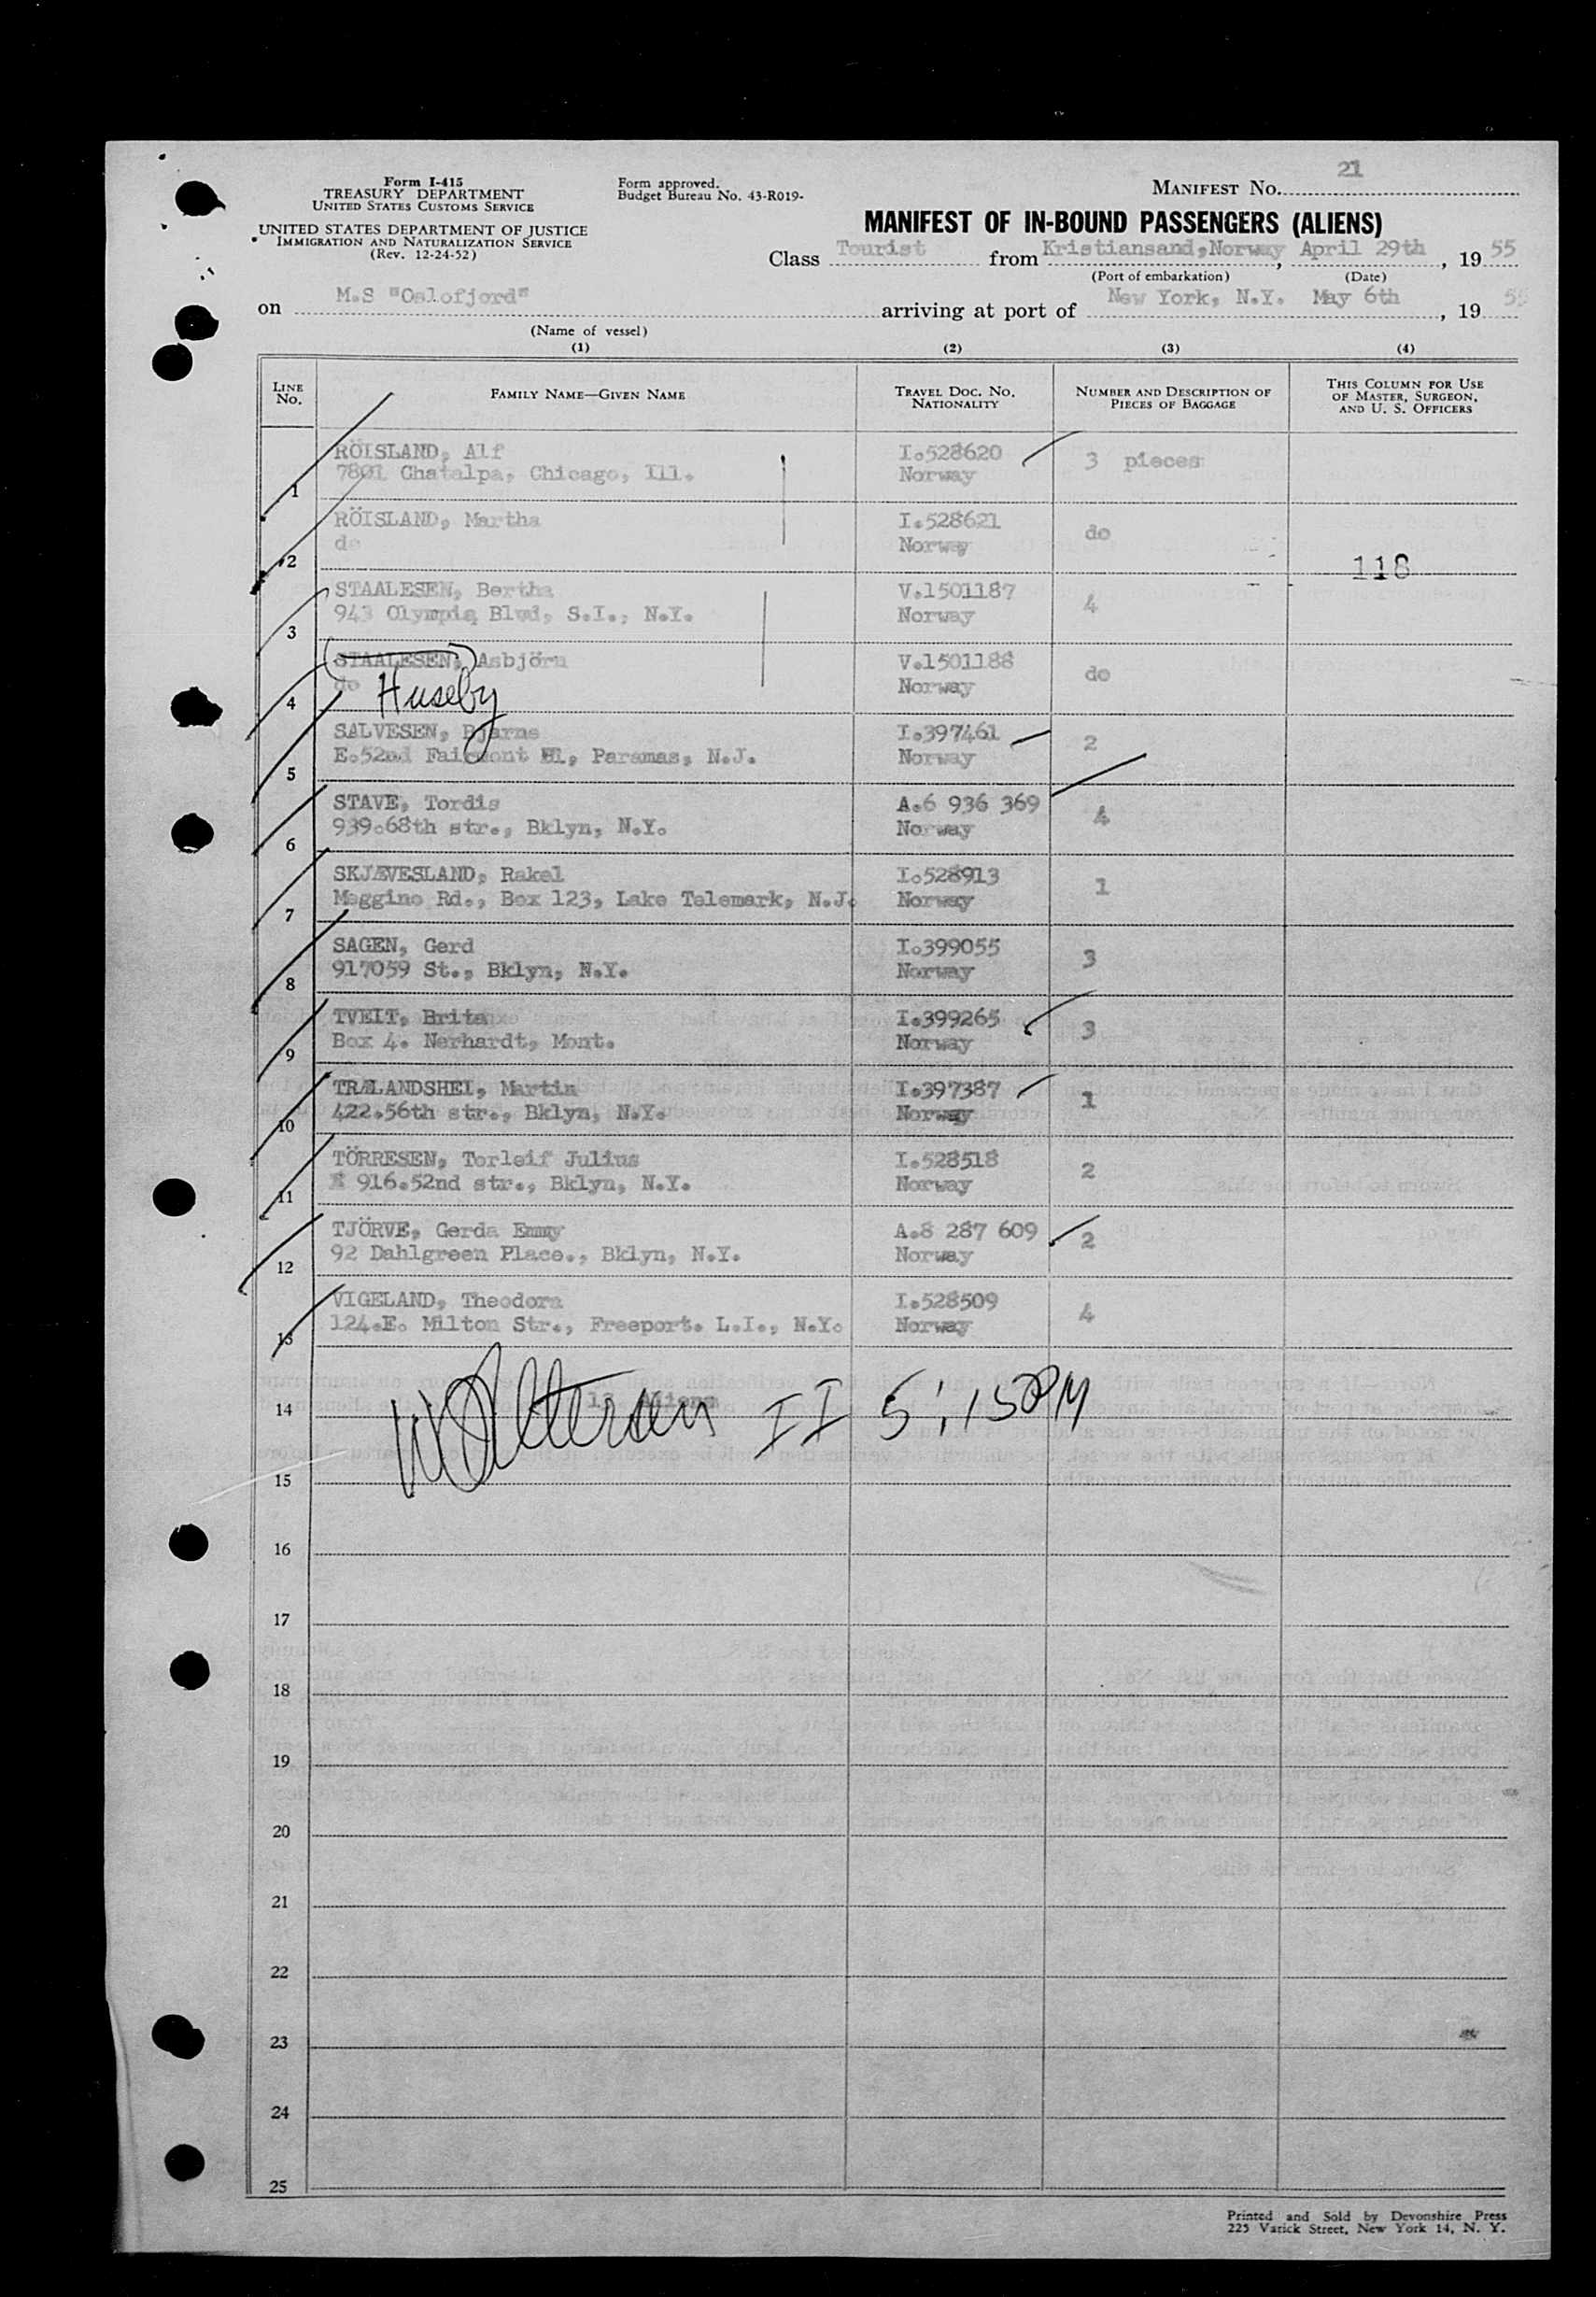 21
Form I-415
TREASURY DEPARTMENT
UNITED STATES CUSTOMS SERVICE
Form approved.
Budget Bureau No. 43-R019-
MANIFEST No.
UNITED STATES DEPARTMENT OF JUSTICE
IMMIGRATION AND NATURALIZATION SERVICE
(Rev. 12-24-52)
MANIFEST OF IN-BOUND PASSENGERS (ALIENS)
Class Tourist from Kristiansand,Norway, April 29th, 19 55
(Port of embarkation) (Date)
on M.S "Oslofjord" arriving at port of New York, N.Y. May 6th, 19 55
(Name of vessel)
(1) (2) (3) (4)
LINE No. FAMILY NAME—GIVEN NAME TRAVEL DOC. NO. NATIONALITY NUMBER AND DESCRIPTION OF PIECES OF BAGGAGE THIS COLUMN FOR USE OF MASTER, SURGEON, AND U. S. OFFICERS
RÖISLAND, Alf I.528620 3 pieces
1 7801 Chatalpa, Chicago, Ill. Norway
RÖISLAND, Martha I.528621 do
2 do Norway 118
STAALESEN, Bertha V.1501187 4
3 943 Olympia Blvd, S.I., N.Y. Norway
STAALESEN, Asbjörn V.1501188 do
4 do Huseby Norway
SALVESEN, Bjarne I.397461 2
5 E.52nd Fairmont Bl, Paramas, N.J. Norway
STAVE, Tordis A.6 936 369 4
6 939.68th str., Bklyn, N.Y. Norway
SKJÆVESLAND, Rakel I.528913 1
7 Meggino Rd., Box 123, Lake Telemark, N.J. Norway
SAGEN, Gerd I.399055 3
8 917059 St., Bklyn, N.Y. Norway
TVEIT, Brita I.399265 3
9 Box 4. Nerhardt, Mont. Norway
TRÆLANDSHEI, Martin I.397387 1
10 422.56th str., Bklyn, N.Y. Norway
TÖRRESEN, Torleif Julius I.528518 2
11 916.52nd str., Bklyn, N.Y. Norway
TJÖRVE, Gerda Emmy A.8 287 609 2
12 92 Dahlgreen Place., Bklyn, N.Y. Norway
VIGELAND, Theodora I.528509 4
13 124.E. Milton Str., Freeport. L.I., N.Y. Norway
14 13 Aliens II 5:15PM
15
16
17
18
19
20
21
22
23
24
25
Printed and Sold by Devonshire Press
225 Varick Street, New York 14, N. Y.